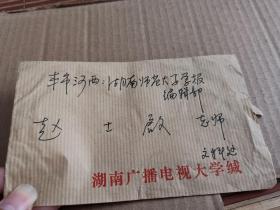 本市河西：湖南师范大学学报
编辑部
赵士 老师
湖南广播电视大学缄